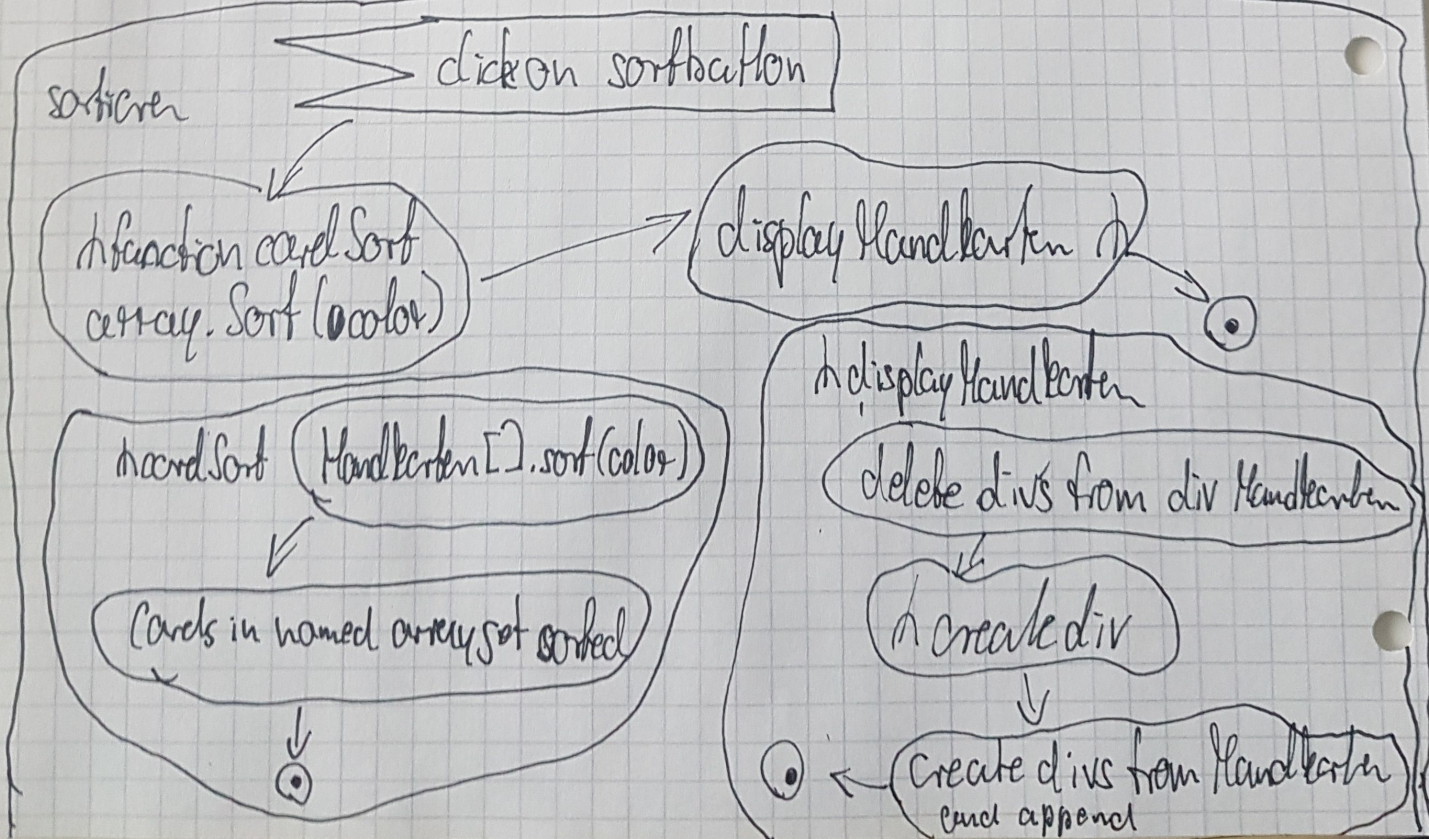 click on sortbutton
sortieren
function cardSort
array.Sort(color)
displayHandkarten
cardSort
Handkarten[].sort(color)
Cards in named array get sorted
displayHandkarten
delete divs from div Handkarten
creatediv
create divs from Handkarten
and append